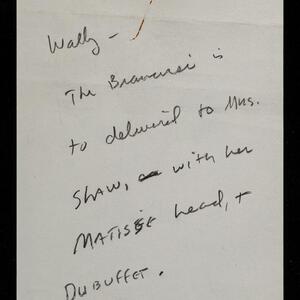 Wally –
The Brancusi is
to delivered to Mrs.
Shaw, with her
MATISSE head, +
DUBUFFET.